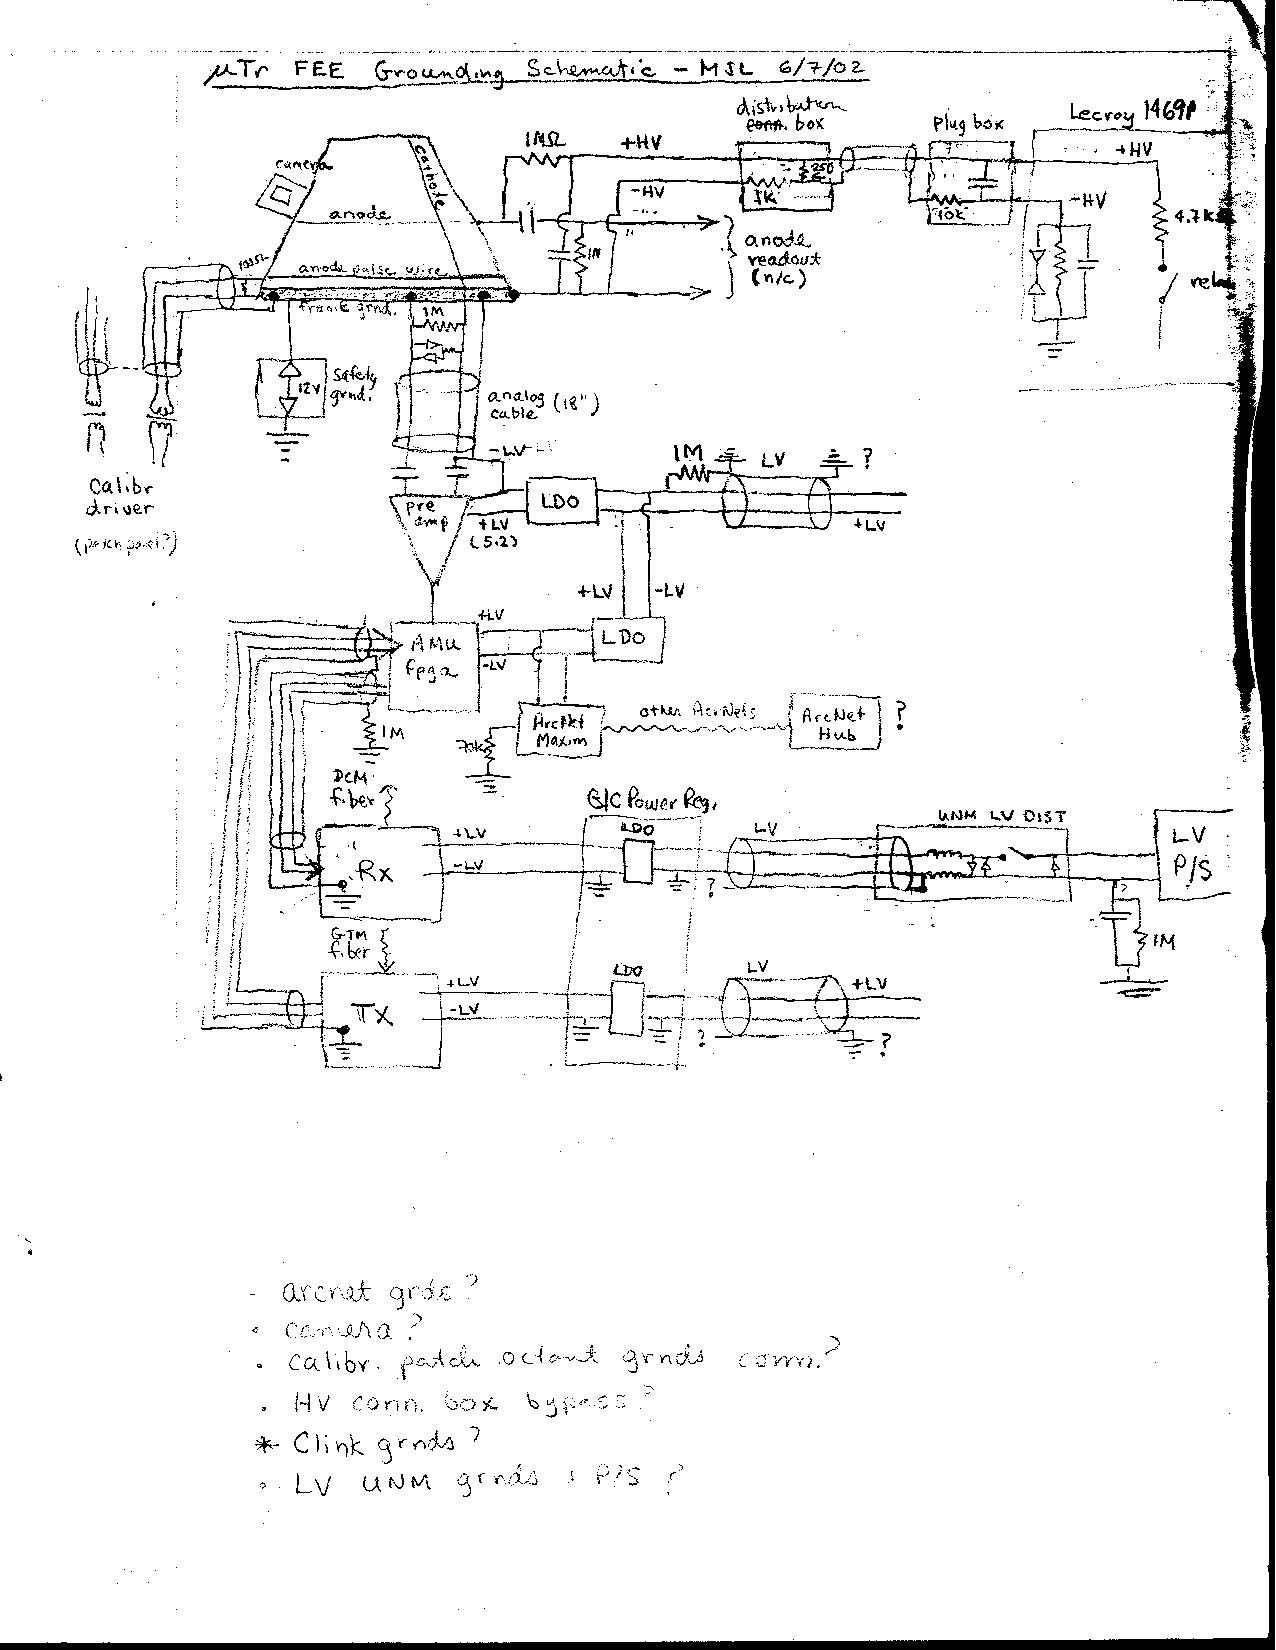 µTr FEE Grounding Schematic - MSL 6/7/02
distribution
conn. box
plug box
Lecroy 1469P
1MΩ
+HV
+HV
camera
cathode
-HV
1K
10K
-HV
4.7k
anode
anode
readout
(n/c)
1M
anode pulse wire
relay
frame grnd.
1M
12V
safety
grnd.
analog
cable (18")
-LV
1M
LV
?
Calibr
driver
(patch panel?)
pre
amp
+LV
(5.2)
LDO
+LV
+LV
-LV
+LV
AMU
fpga
-LV
LDO
1M
ArcNet
Maxim
other ArcNets
ArcNet
Hub
?
DCM
fiber
G/C Power Reg.
LDO
LV
UNM LV DIST
LV
P/S
+LV
-LV
Rx
?
?
1M
GTM
fiber
LDO
LV
+LV
-LV
+LV
TX
?
?
- arcnet grds?
• camera?
• calibr. patch octant grnds conn.?
• HV conn. box bypass?
* Clink grnds?
• LV UNM grnds + P/S ?